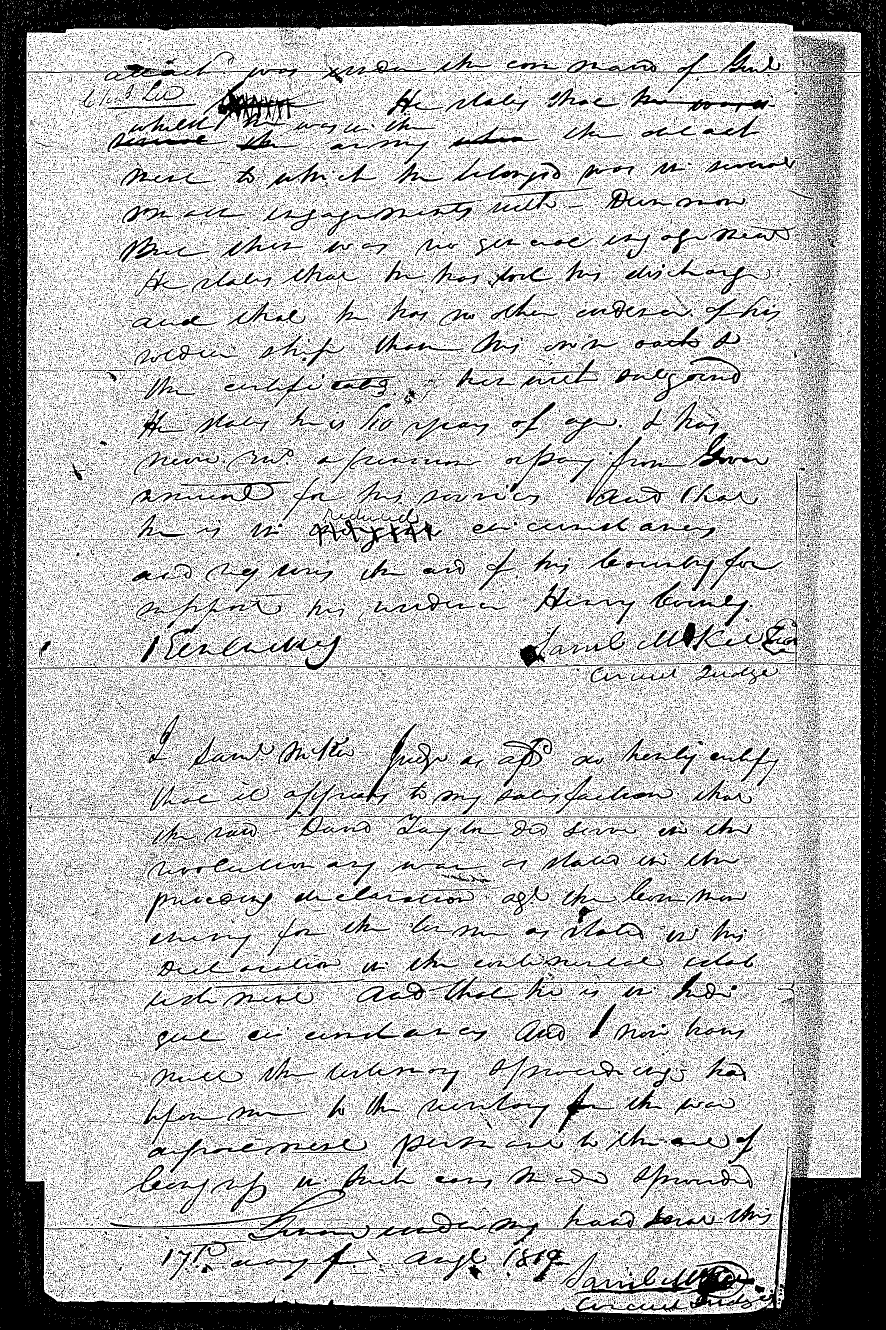 attack was under the command of Genl
Chas Lee He states that he was a
whilst he was in the
army when the detach
ment to which he belonged was in several
small engagements with Dunmore
But there was no general engagement
He states that he has lost his discharge
and that he has no other evidence of his
soldier ship than his own oath &
the certificate herewith
He states he is 60 years of age & has
never recd a pension or pay from Gover
ment for his services And that
he is in reduced circumstances
and requires the aid of his Country for
support his Henry
Kentucky Saml McKee
Circuit Judge
I Saml McKee Judge as afsd do hereby certify
that it appears to my satisfaction that
the said David Taylor did serve in the
revolutionary war as stated in the
preceding declaration agt the common
enemy for the term as stated in his
Declaration in the continental estab
lishment And that he is in Indi
gent circumstances And I now trans
mit the testimony & proceedings had
before me to the secretary for the war
department pursuant to the act of
Congress in such cases made & provided
Given under my hand this
17th day of Augt 1819
Saml McKee
Circuit Judge